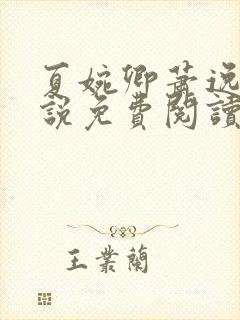 夏婉卿蕭逸
說免費閱讀
王業蘭